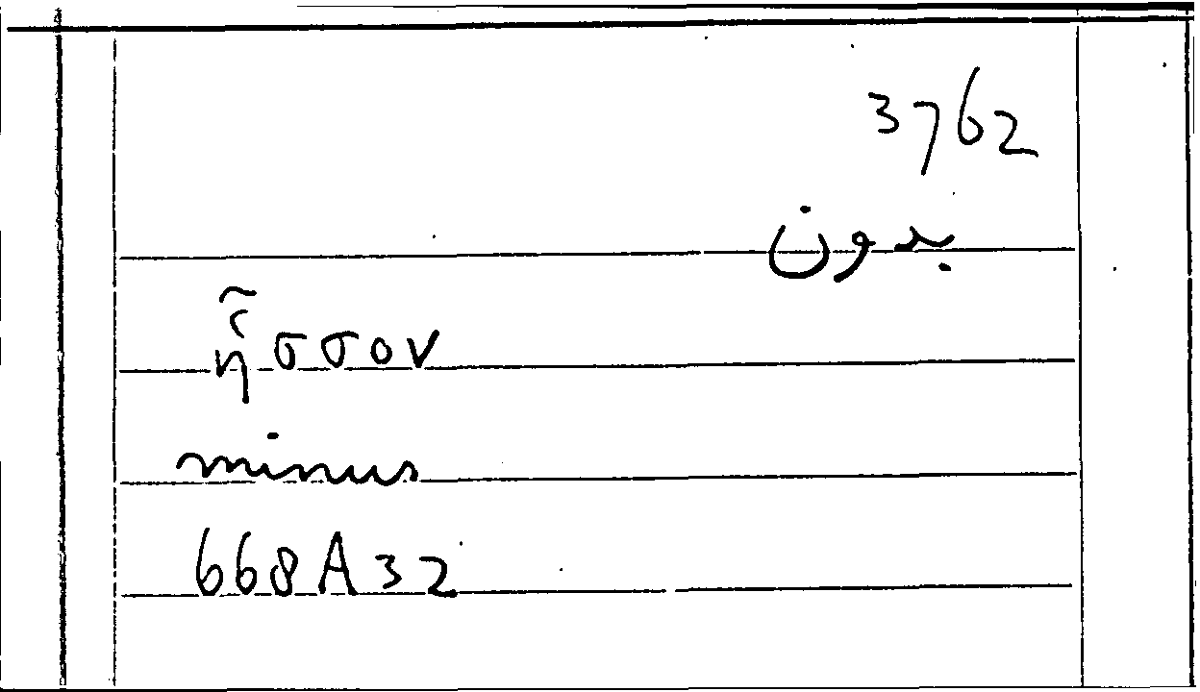 3762
بدون
ἧσσον
minus
668A32